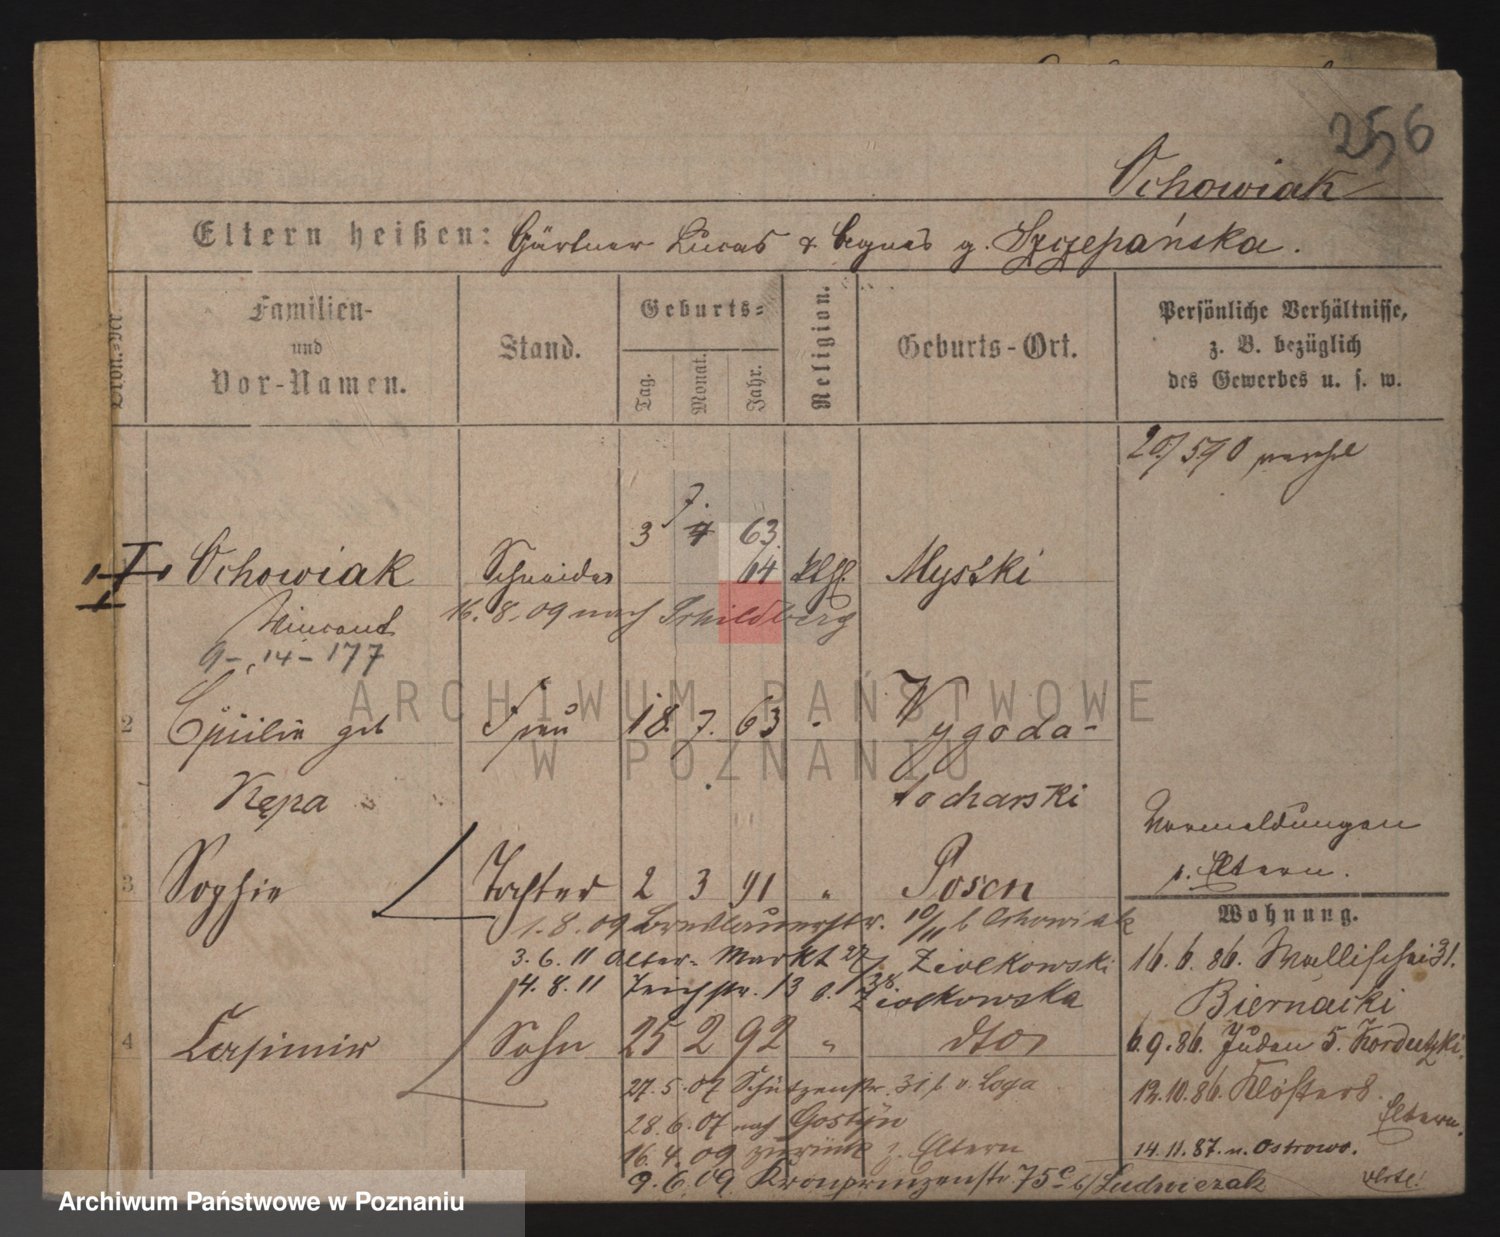 256
Ochowiak
Eltern heißen: Gärtner Lucas & Agnes g. Szczepańska.
Familien- und Vor-Namen.
Stand.
Geburts-
Tag.
Monat.
Jahr.
Religion.
Geburts-Ort.
Persönliche Verhältnisse,
z. B. bezüglich
des Gewerbes u. s. w.
20/5 90
7.
3 4 63
Ochowiak Schneider 64 kth. Myszki
Vincent
16.8.09 nach Schildberg
9-14-177
2 Cäcilie geb Frau 18. 7. 63 " Wygoda-
Kępa tocharski
Vormeldungen
p. Eltern.
3 Sophie Tochter 2 3 91 " Posen
1.8.09 Breslauerstr. 10/11 b Ochowiak
3.6.11 Alter-Markt 27 Ziolkowski
14.8.11 Teichstr. 13 b. Ziolkowska
4 Casimir Sohn 25 2 92 " dto
27.5.07 Schützenstr. 31 b v. Loga
28.6.07 nach Gostyn
16.4.09 zurück z. Eltern
9.6.09 Kronprinzenstr 75c b/ Ludwiczak
Wohnung.
16.6.86. Wallischei 31.
Biernacki
6.9.86. Juden 5. Kordutzki
12.10.86. Klosters.
Eltern.
14.11.87. n. Ostrowo.
verte!
ARCHIWUM PAŃSTWOWE
W POZNANIU
Archiwum Państwowe w Poznaniu